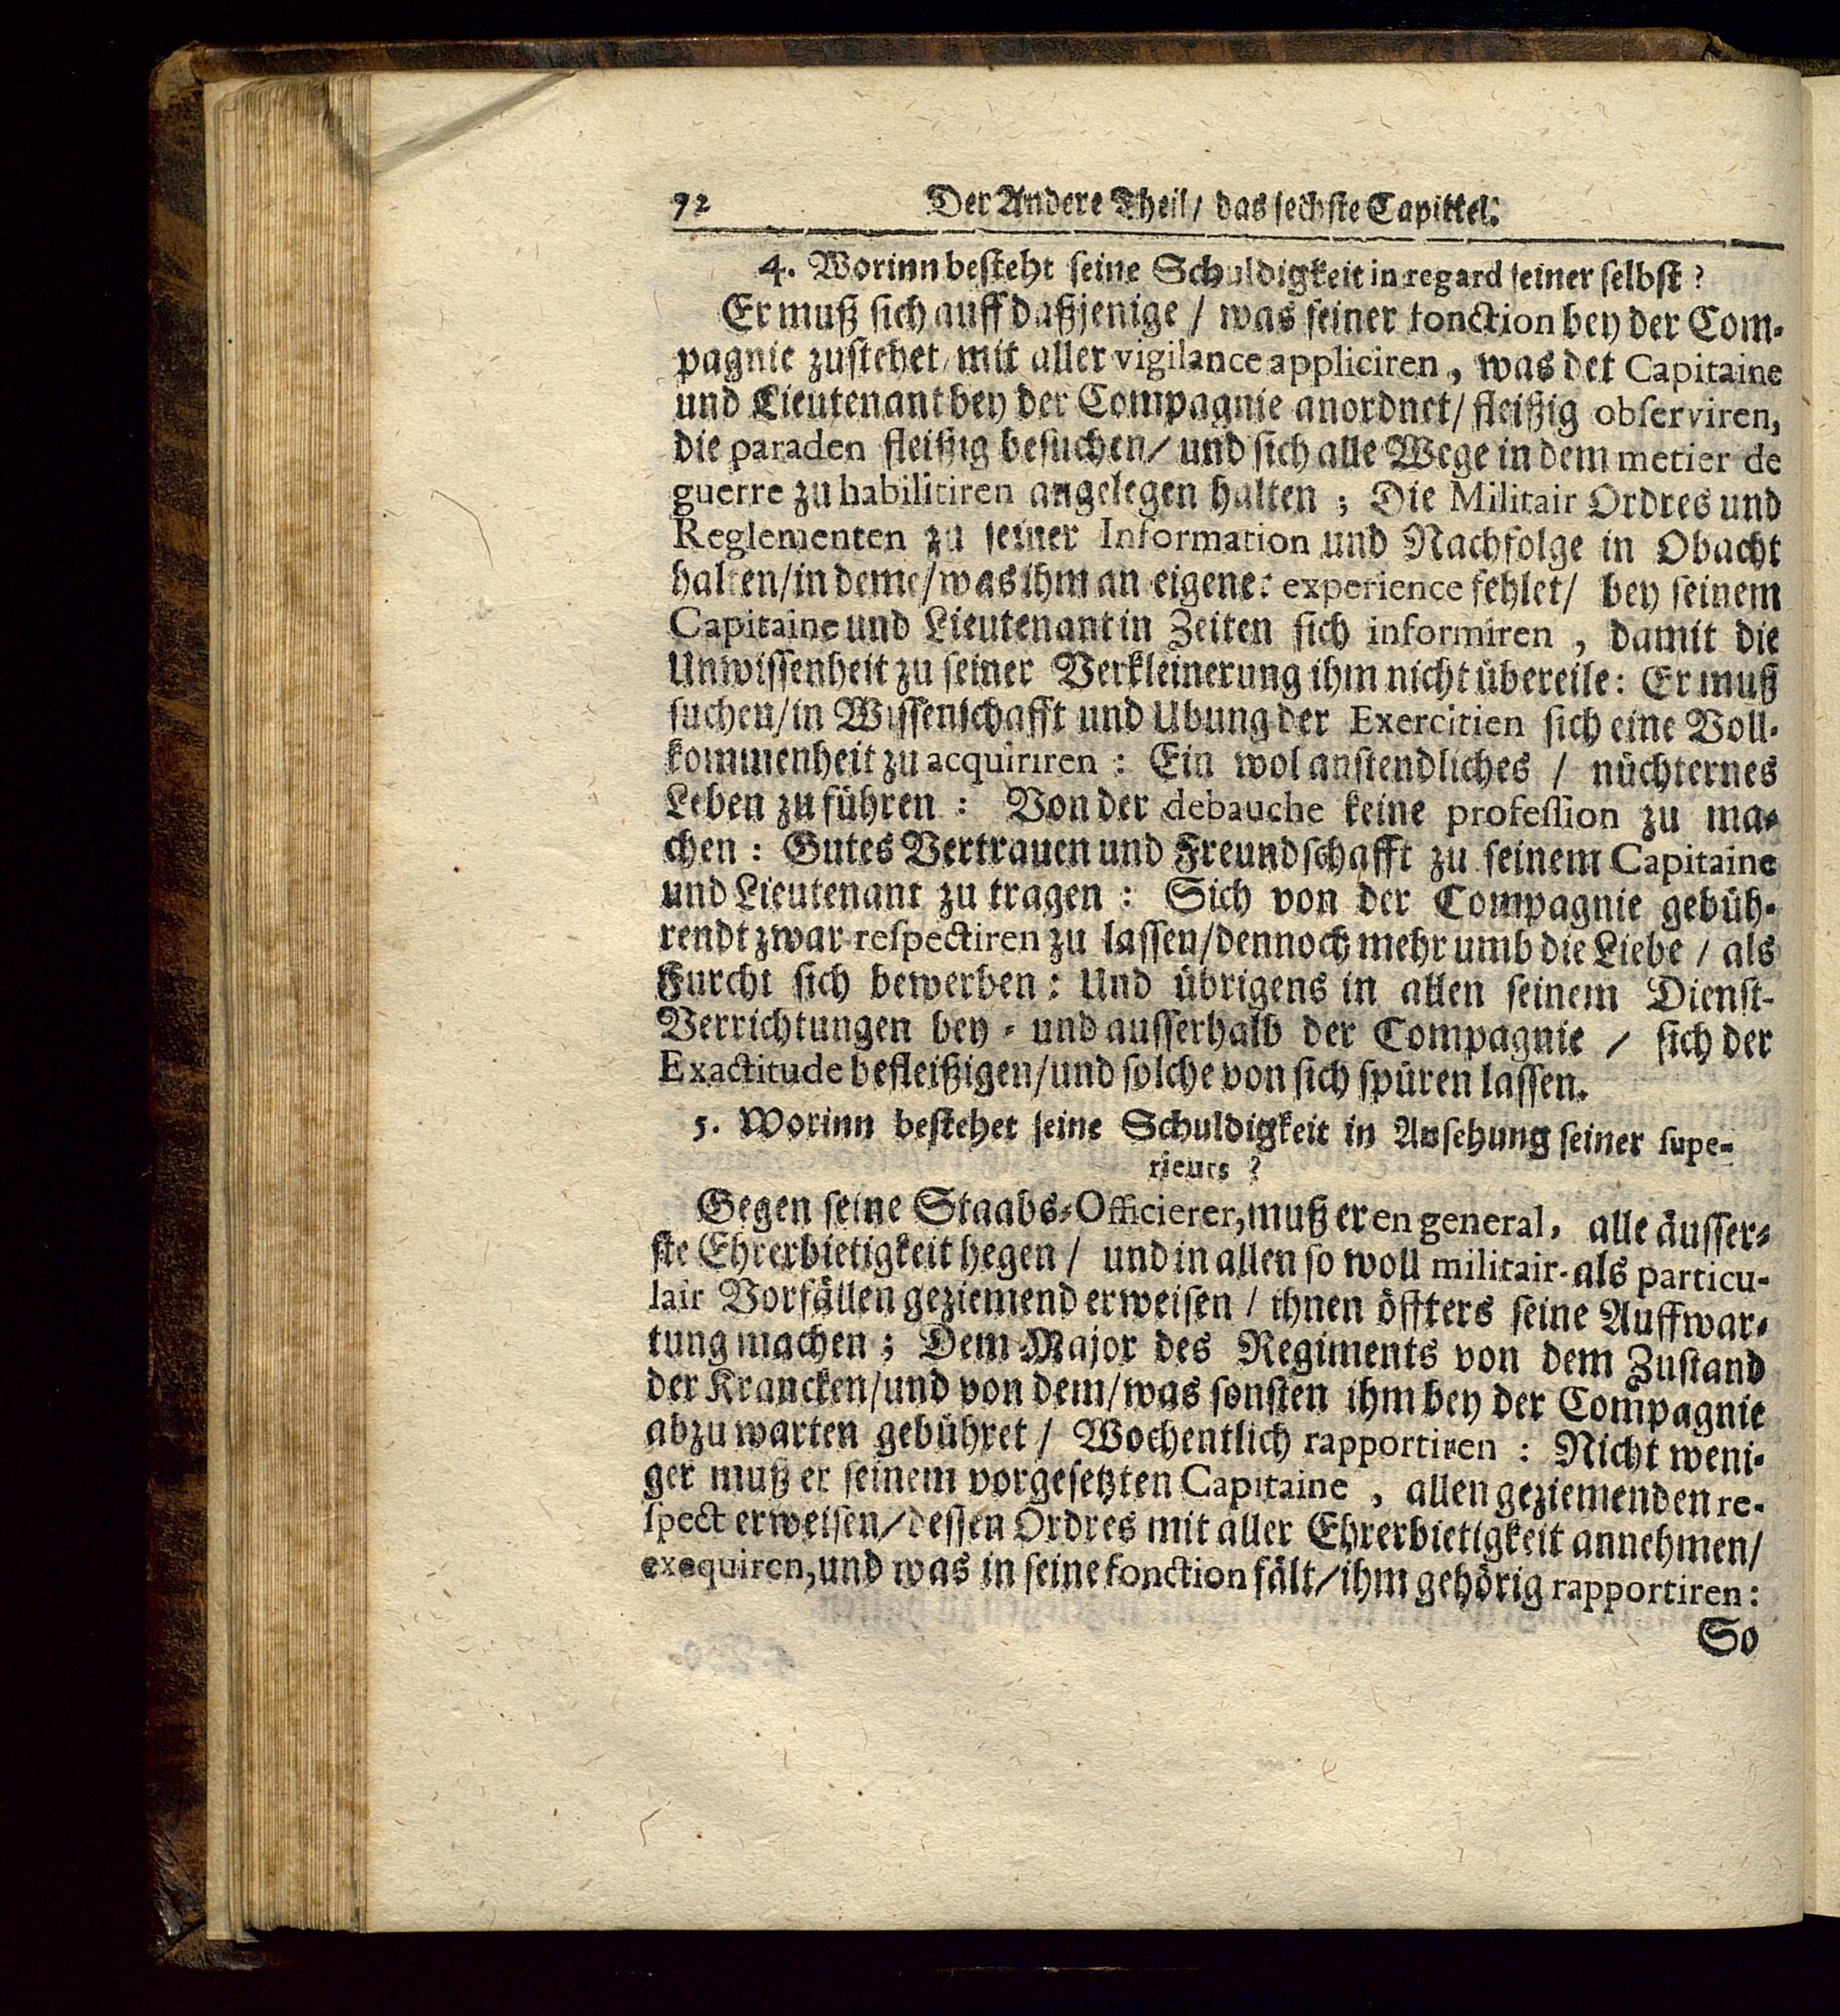 92 Der Andere Theil/ das sechste Capittel.
4. Worinn besteht seine Schuldigkeit in regard seiner selbst?
Er muß sich auff daßjenige / was seiner fonction bey der Com-
pagnie zustehet/ mit aller vigilance appliciren, was det Capitaine
und Lieutenant bey der Compagnie anordnet/ fleißig observiren,
die paraden fleißig besuchen/ und sich alle Wege in dem metier de
guerre zu habilitiren angelegen halten; Die Militair Ordres und
Reglementen zu seiner Information und Nachfolge in Obacht
halten/ in deme/ was ihm an eigener experience fehlet/ bey seinem
Capitaine und Lieutenant in Zeiten sich informiren, damit die
Unwissenheit zu seiner Verkleinerung ihm nicht übereile: Er muß
suchen/ in Wissenschafft und Ubung der Exercitien sich eine Voll-
kommenheit zu acquiriren: Ein wol anstendliches / nüchternes
Leben zu führen: Von der debauche keine profession zu ma-
chen: Gutes Vertrauen und Freundschafft zu seinem Capitaine
und Lieutenant zu tragen: Sich von der Compagnie gebüh-
rendt zwar respectiren zu lassen/ dennoch mehr umb die Liebe / als
Furcht sich bewerben: Und übrigens in allen seinem Dienst-
Verrichtungen bey - und ausserhalb der Compagnie / sich der
Exactitude befleißigen/ und solche von sich spüren lassen.
5. Worinn bestehet seine Schuldigkeit in Ansehung seiner supe-
rieurs?
Gegen seine Staabs-Officierer, muß er en general, alle äusser-
ste Ehrerbietigkeit hegen / und in allen so woll militair- als particu-
lair Vorfällen geziemend erweisen / ihnen öffters seine Auffwar-
tung machen; Dem Major des Regiments von dem Zustand
der Krancken/ und von dem/ was sonsten ihm bey der Compagnie
abzuwarten gebühret / Wochentlich rapportiren: Nicht weni-
ger muß er seinem vorgesetzten Capitaine, allen geziemenden re-
spect erweisen/ dessen Ordres mit aller Ehrerbietigkeit annehmen/
exequiren, und was in seine fonction fält/ ihm gehörig rapportiren:
So